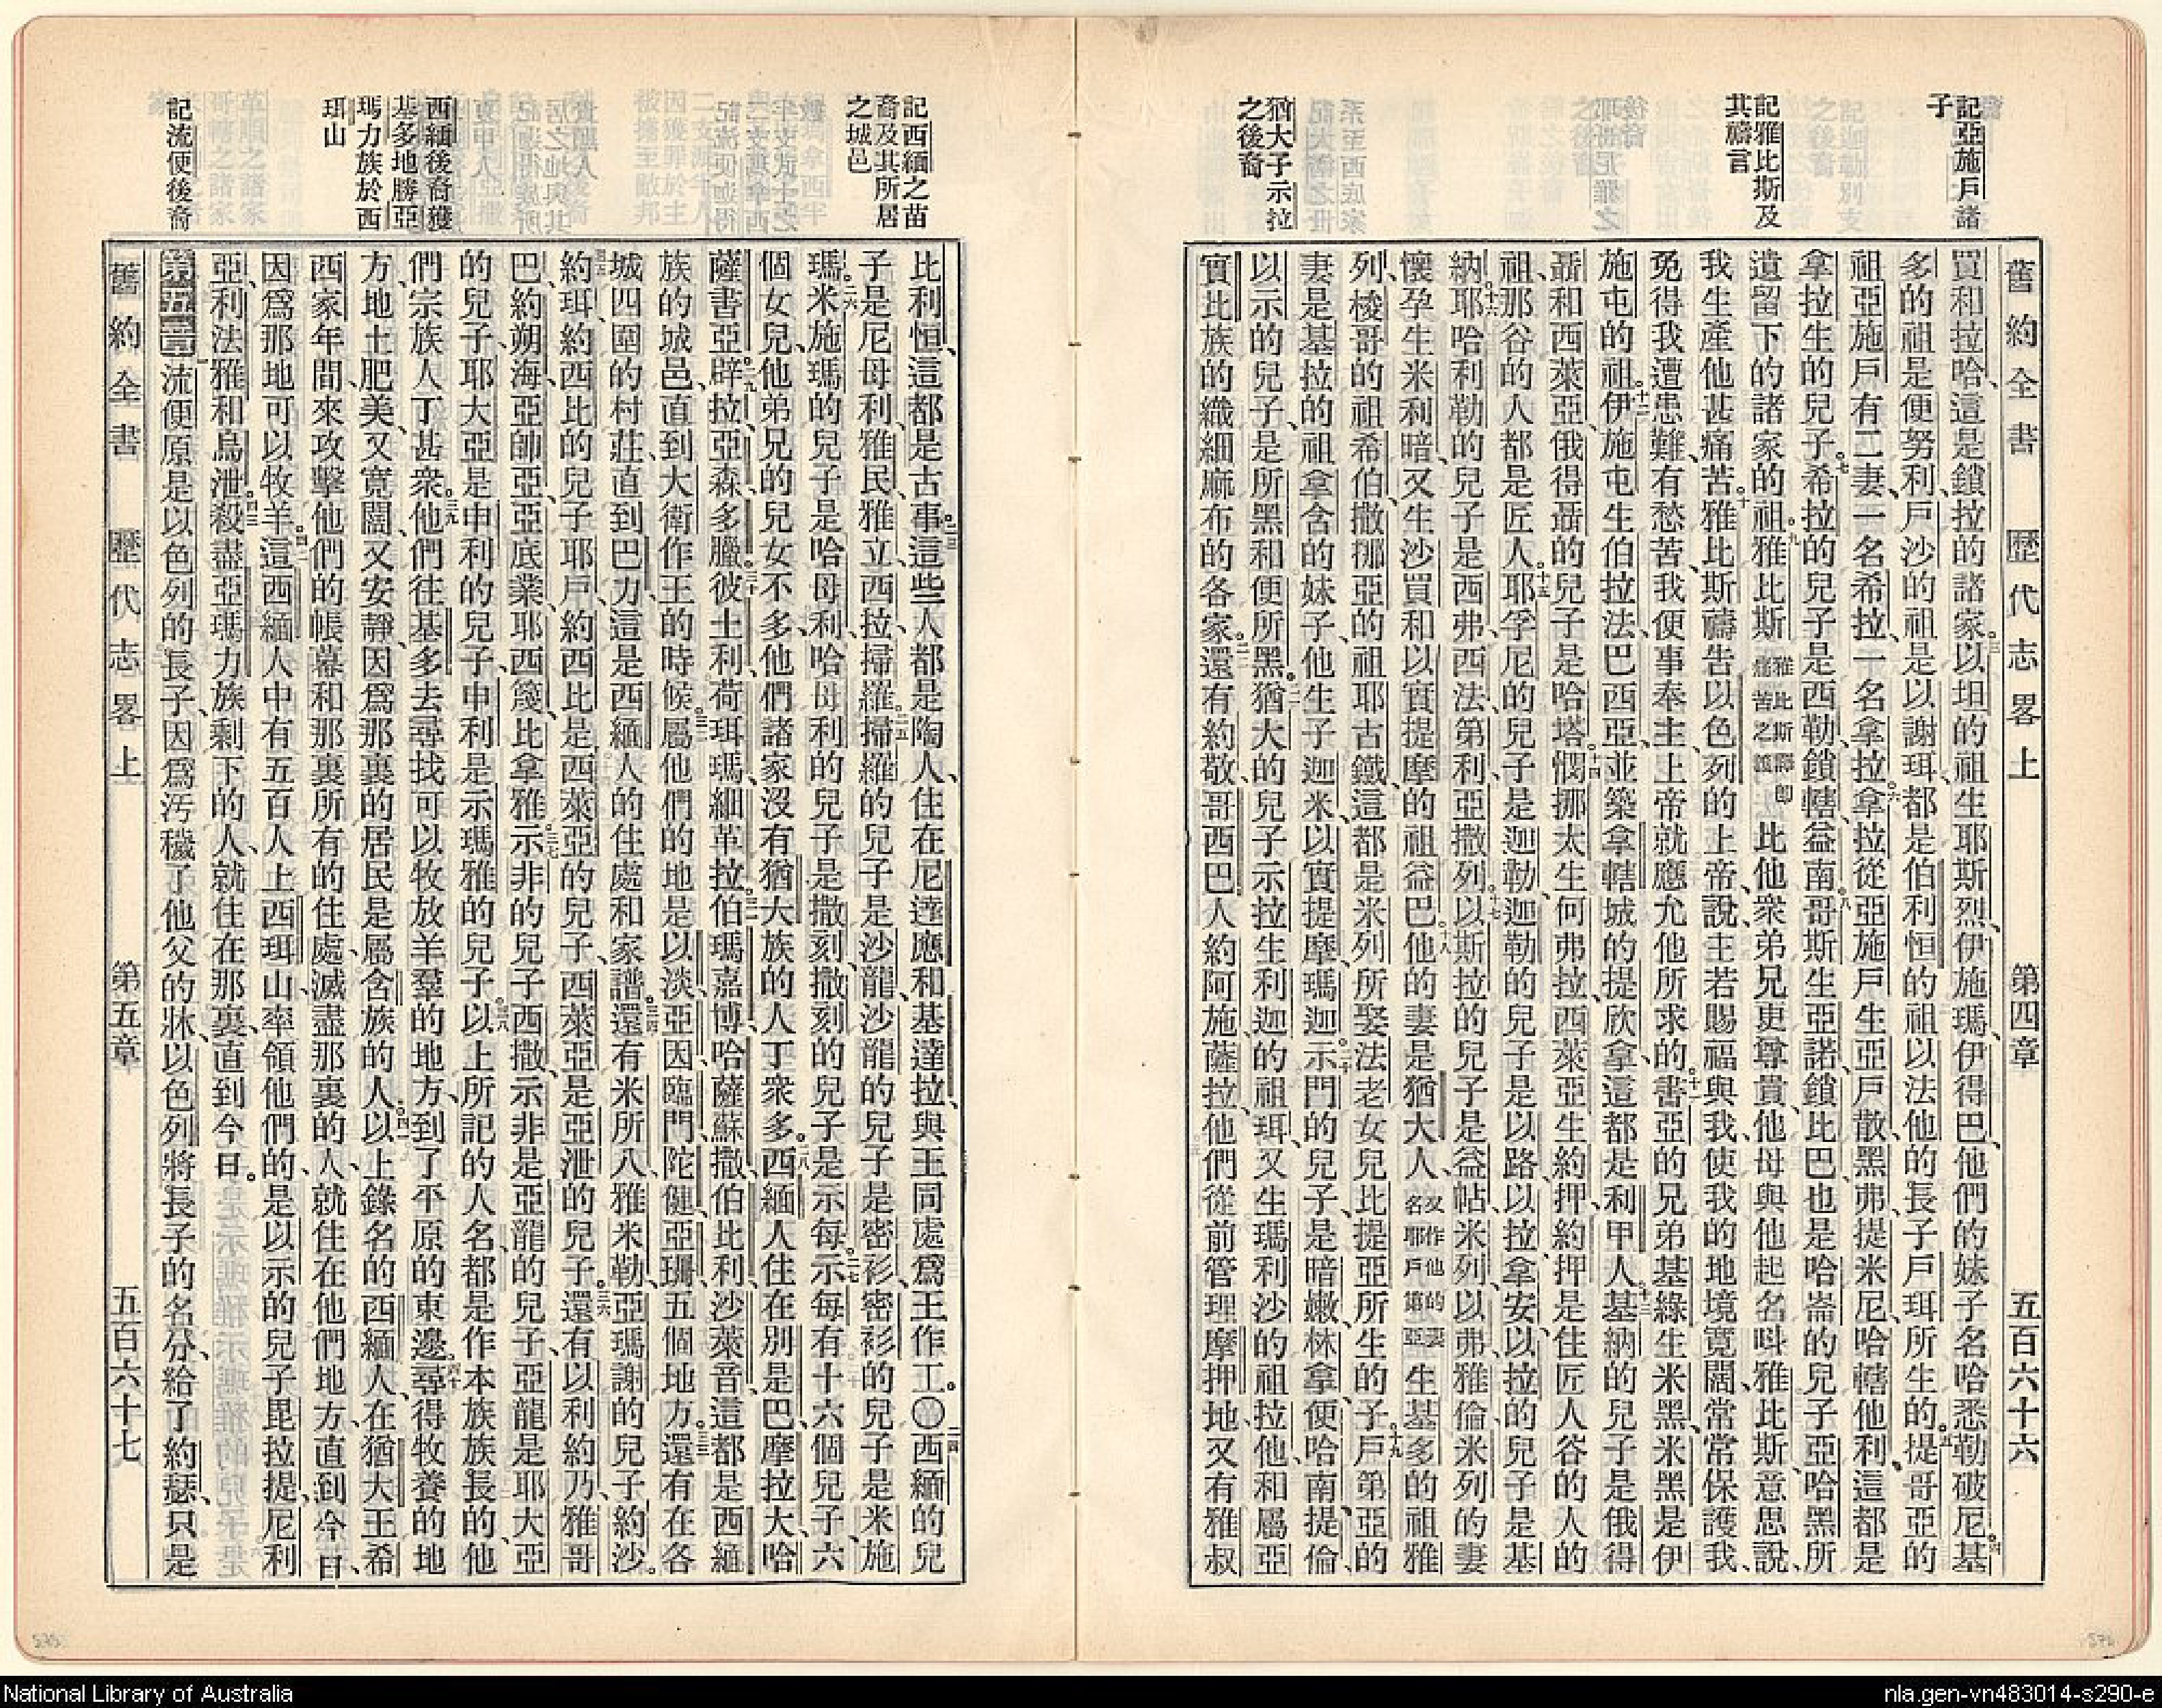 記亞施戶諸
子
記雅比斯及
其禱言
猶大子示拉
之後裔
舊約全書 歷代志畧上 第四章 五百六十六
買和拉哈、這是鎖拉的諸家。三以坦的祖、生耶斯烈、伊施瑪、伊得巴、他們的妹子名哈悉勒破尼。四基
多的祖是便努利、戶沙的祖是以謝珥、都是伯利恒的祖以法他的長子戶珥所生的。五提哥亞的
祖亞施戶有二妻、一名希拉、一名拿拉。六拿拉從亞施戶生亞戶散、黑弗、提米尼、哈轄他利、這都是
拿拉生的兒子。七希拉的兒子是西勒、鎖轄、益南。八哥斯生亞諾、鎖比巴、也是哈崙的兒子亞哈黑所
遺留下的諸家的祖。九雅比斯雅比斯譯即痛苦之義比他衆弟兄更尊貴、他母與他起名呌雅比斯、意思說、
我生產他甚痛苦。十雅比斯禱告以色列的上帝、說、主若賜福與我、使我的地境寬闊、常常保護我、
免得我遭患難、有愁苦、我便事奉主、上帝就應允他所求的。十一書亞的兄弟基綠生米黑、米黑是伊
施屯的祖。十二伊施屯生伯拉法、巴西亞、並築拿轄城的提欣拿、這都是利甲人。十三基納的兒子是俄得
聶和西萊亞、俄得聶的兒子是哈塔。十四憫挪太生何弗拉、西萊亞生約押、約押是住匠人谷的人的
祖、那谷的人都是匠人。十五耶孚尼的兒子是迦勒、迦勒的兒子是以路、以拉、拿安、以拉的兒子是基
納。十六耶哈利勒的兒子是西弗、西法、第利、亞撒列。十七以斯拉的兒子是益帖、米列、以弗、雅倫、米列的妻
懷孕生米利暗、又生沙買和以實提摩的祖益巴。十八他的妻是猶大人又作他的妻名耶戶第亞生基多的祖雅
列、梭哥的祖希伯、撒挪亞的祖耶古鐵、這都是米列所娶法老女兒比提亞所生的子。十九戶第亞的
妻是基拉的祖拿含的妹子、他生子迦米、以實提摩、瑪迦。二十示門的兒子、是暗嫩、林拿、便哈南、提倫、
以示的兒子、是所黑和便所黑。二一猶大的兒子示拉生利迦的祖珥、又生瑪利沙的祖拉他、和屬亞
實比族的織細麻布的各家。二二還有約敬、哥西巴人、約阿施、薩拉、他們從前管理摩押地、又有雅叔
記西緬之苗
裔及其所居
之城邑
西緬後裔獲
基多地勝亞
瑪力族於西
珥山
記流便後裔
比利恒、這都是古事。二三這些人都是陶人、住在尼達應和基達拉、與王同處爲王作工。〇二四西緬的兒
子、是尼母利、雅民、雅立、西拉、掃羅。二五掃羅的兒子是沙龍、沙龍的兒子是密衫、密衫的兒子是米施
瑪。二六米施瑪的兒子是哈母利、哈母利的兒子是撒刻、撒刻的兒子是示每。二七示每有十六個兒子、六
個女兒、他弟兄的兒女不多、他們諸家沒有猶大族的人丁衆多。二八西緬人住在別是巴、摩拉大、哈
薩書亞。二九辟拉、亞森、多臘。三十彼土利、荷珥瑪、細革拉。三一伯瑪嘉博、哈薩蘇撒、伯比利、沙萊音、這都是西緬
族的城邑、直到大衛作王的時候。三二屬他們的地是以淡、亞因、臨門、陀健、亞珊、五個地方。三三還有在各
城四圍的村莊、直到巴力、這是西緬人的住處和家譜。三四還有米所八、雅米勒、亞瑪謝的兒子約沙。
三五約珥、約西比的兒子耶戶、約西比是西萊亞的兒子、西萊亞是亞泄的兒子。三六還有以利約乃、雅哥
巴、約朔海、亞帥亞、亞底業、耶西篾、比拿雅。三七示非的兒子西撒、示非是亞龍的兒子、亞龍是耶大亞
的兒子、耶大亞是申利的兒子、申利是示瑪雅的兒子。三八以上所記的人名都是作本族族長的、他
們宗族人丁甚衆。三九他們往基多去尋找可以牧放羊羣的地方、到了平原的東邊。四十尋得牧養的地
方、地土肥美、又寬闊、又安靜、因爲那裏的居民是屬含族的人。四一以上錄名的西緬人、在猶大王希
西家年間、來攻擊他們的帳幕和那裏所有的住處、滅盡那裏的人、就住在他們地方、直到今日、
因爲那地可以牧羊。四二這西緬人中有五百人上西珥山、率領他們的、是以示的兒子毘拉提、尼利
亞、利法雅和烏泄。四三殺盡亞瑪力族剩下的人、就住在那裏、直到今日。
第五章一流便原是以色列的長子、因爲汚穢了他父的牀、以色列將長子的名分、給了約瑟、只是
舊約全書 歷代志畧上 第五章 五百六十七
575
574
National Library of Australia
nla.gen-vn483014-s290-e